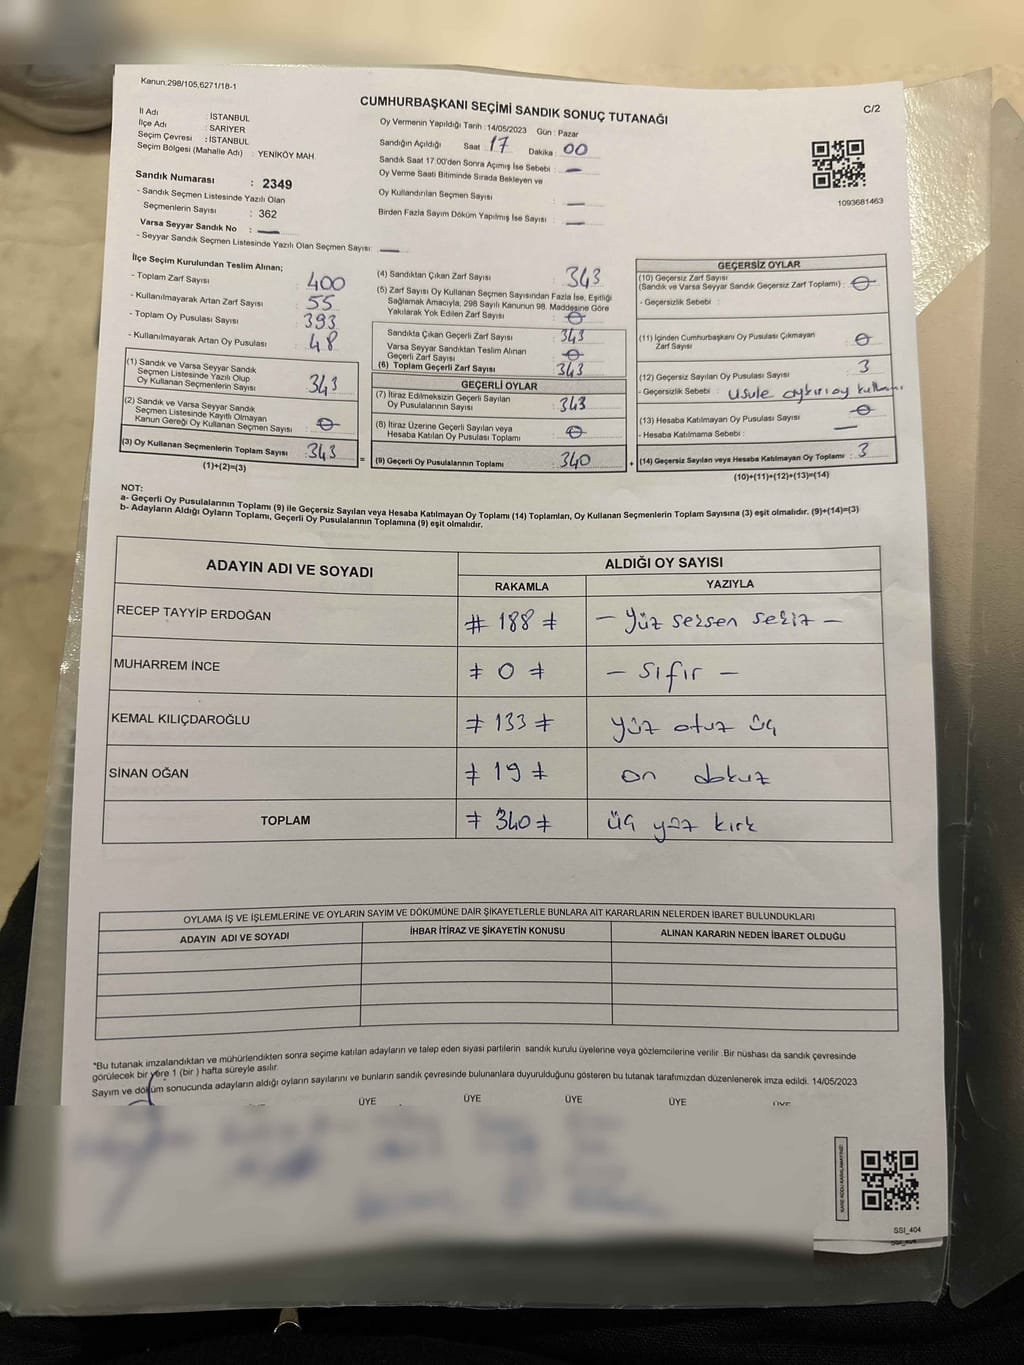 Kanun:298/105,6271/18-1
C/2
CUMHURBAŞKANI SEÇİMİ SANDIK SONUÇ TUTANAĞI
İl Adı : İSTANBUL
İlçe Adı : SARIYER
Seçim Çevresi : İSTANBUL
Seçim Bölgesi (Mahalle Adı) : YENİKÖY MAH
Oy Vermenin Yapıldığı Tarih :14/05/2023 Gün : Pazar
Sandığın Açıldığı Saat : 17 Dakika : 00
Sandık Saat 17.00'den Sonra Açımış İse Sebebi : —
Oy Verme Saati Bitiminde Sırada Bekleyen ve
Oy Kullandırılan Seçmen Sayısı : —
Birden Fazla Sayım Döküm Yapılmış İse Sayısı : —
1093681463
Sandık Numarası : 2349
- Sandık Seçmen Listesinde Yazılı Olan
Seçmenlerin Sayısı : 362
Varsa Seyyar Sandık No : —
- Seyyar Sandık Seçmen Listesinde Yazılı Olan Seçmen Sayısı: —
İlçe Seçim Kurulundan Teslim Alınan;
- Toplam Zarf Sayısı 400
- Kullanılmayarak Artan Zarf Sayısı 55
- Toplam Oy Pusulası Sayısı 393
- Kullanılmayarak Artan Oy Pusulası 48
(1) Sandık ve Varsa Seyyar Sandık
Seçmen Listesinde Yazılı Olup
Oy Kullanan Seçmenlerin Sayısı 343
(2) Sandık ve Varsa Seyyar Sandık
Seçmen Listesinde Kayıtlı Olmayan
Kanun Gereği Oy Kullanan Seçmen Sayısı : 0
(3) Oy Kullanan Seçmenlerin Toplam Sayısı : 343 =
(1)+(2)=(3)
(4) Sandıktan Çıkan Zarf Sayısı 343
(5) Zarf Sayısı Oy Kullanan Seçmen Sayısından Fazla İse, Eşitliği
Sağlamak Amacıyla, 298 Sayılı Kanunun 98. Maddesine Göre
Yakılarak Yok Edilen Zarf Sayısı : 0
Sandıkta Çıkan Geçerli Zarf Sayısı : 343
Varsa Seyyar Sandıktan Teslim Alınan
Geçerli Zarf Sayısı : 0
(6) Toplam Geçerli Zarf Sayısı : 343
GEÇERLİ OYLAR
(7) İtiraz Edilmeksizin Geçerli Sayılan
Oy Pusulalarının Sayısı : 343
(8) İtiraz Üzerine Geçerli Sayılan veya
Hesaba Katılan Oy Pusulası Toplamı : 0
(9) Geçerli Oy Pusulalarının Toplamı : 340 +
GEÇERSİZ OYLAR
(10) Geçersiz Zarf Sayısı
(Sandık ve Varsa Seyyar Sandık Geçersiz Zarf Toplamı) : 0
- Geçersizlik Sebebi :
(11) İçinden Cumhurbaşkanı Oy Pusulası Çıkmayan
Zarf Sayısı : 0
(12) Geçersiz Sayılan Oy Pusulası Sayısı : 3
- Geçersizlik Sebebi : usule aykırı oy kullanı
(13) Hesaba Katılmayan Oy Pusulası Sayısı : 0
- Hesaba Katılmama Sebebi : —
(14) Geçersiz Sayılan veya Hesaba Katılmayan Oy Toplamı : 3
(10)+(11)+(12)+(13)=(14)
NOT:
a- Geçerli Oy Pusulalarının Toplamı (9) ile Geçersiz Sayılan veya Hesaba Katılmayan Oy Toplamı (14) Toplamları, Oy Kullanan Seçmenlerin Toplam Sayısına (3) eşit olmalıdır. (9)+(14)=(3)
b- Adayların Aldığı Oyların Toplamı, Geçerli Oy Pusulalarının Toplamına (9) eşit olmalıdır.
ADAYIN ADI VE SOYADI ALDIĞI OY SAYISI
RAKAMLA YAZIYLA
RECEP TAYYİP ERDOĞAN # 188 # – Yüz seksen sekiz –
MUHARREM İNCE # 0 # – Sıfır –
KEMAL KILIÇDAROĞLU # 133 # yüz otuz üç
SİNAN OĞAN # 19 # on dokuz
TOPLAM # 340 # üç yüz kırk
OYLAMA İŞ VE İŞLEMLERİNE VE OYLARIN SAYIM VE DÖKÜMÜNE DAİR ŞİKAYETLERLE BUNLARA AİT KARARLARIN NELERDEN İBARET BULUNDUKLARI
ADAYIN ADI VE SOYADI İHBAR İTİRAZ VE ŞİKAYETİN KONUSU ALINAN KARARIN NEDEN İBARET OLDUĞU
*Bu tutanak imzalandıktan ve mühürlendikten sonra seçime katılan adayların ve talep eden siyasi partilerin sandık kurulu üyelerine veya gözlemcilerine verilir .Bir nüshası da sandık çevresinde
görülecek bir yere 1 (bir ) hafta süreyle asılır.
Sayım ve döküm sonucunda adayların aldığı oyların sayılarını ve bunların sandık çevresinde bulunanlara duyurulduğunu gösteren bu tutanak tarafımızdan düzenlenerek imza edildi. 14/05/2023
ÜYE ÜYE ÜYE ÜYE
KARE KODU KARALAMAYINIZ!
SSI_404